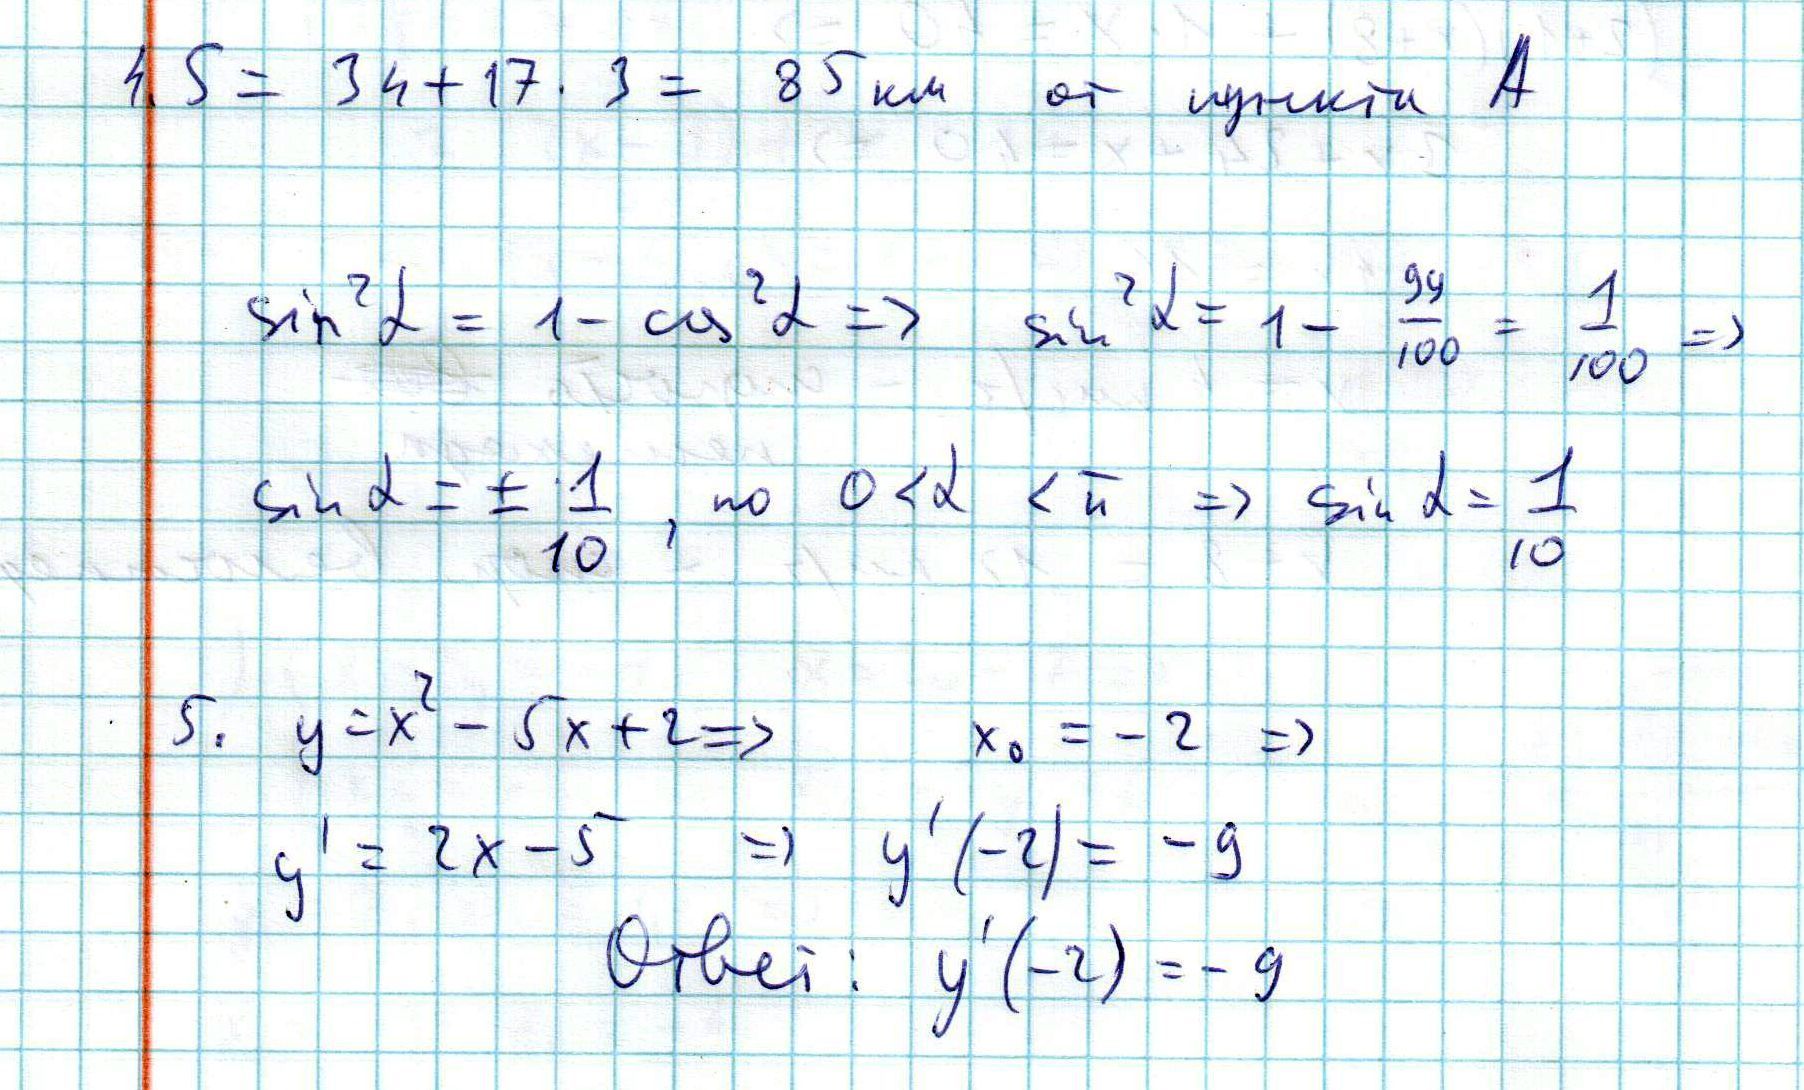 4. S = 34 + 17 · 3 = 85 км от пункта A
sin²α = 1 - cos²α => sin²α = 1 - 99/100 = 1/100 =>
sin α = ± 1/10, но 0 < α < π => sin α = 1/10
5. y = x² - 5x + 2 => x₀ = -2 =>
y' = 2x - 5 => y'(-2) = -9
Ответ: y'(-2) = -9